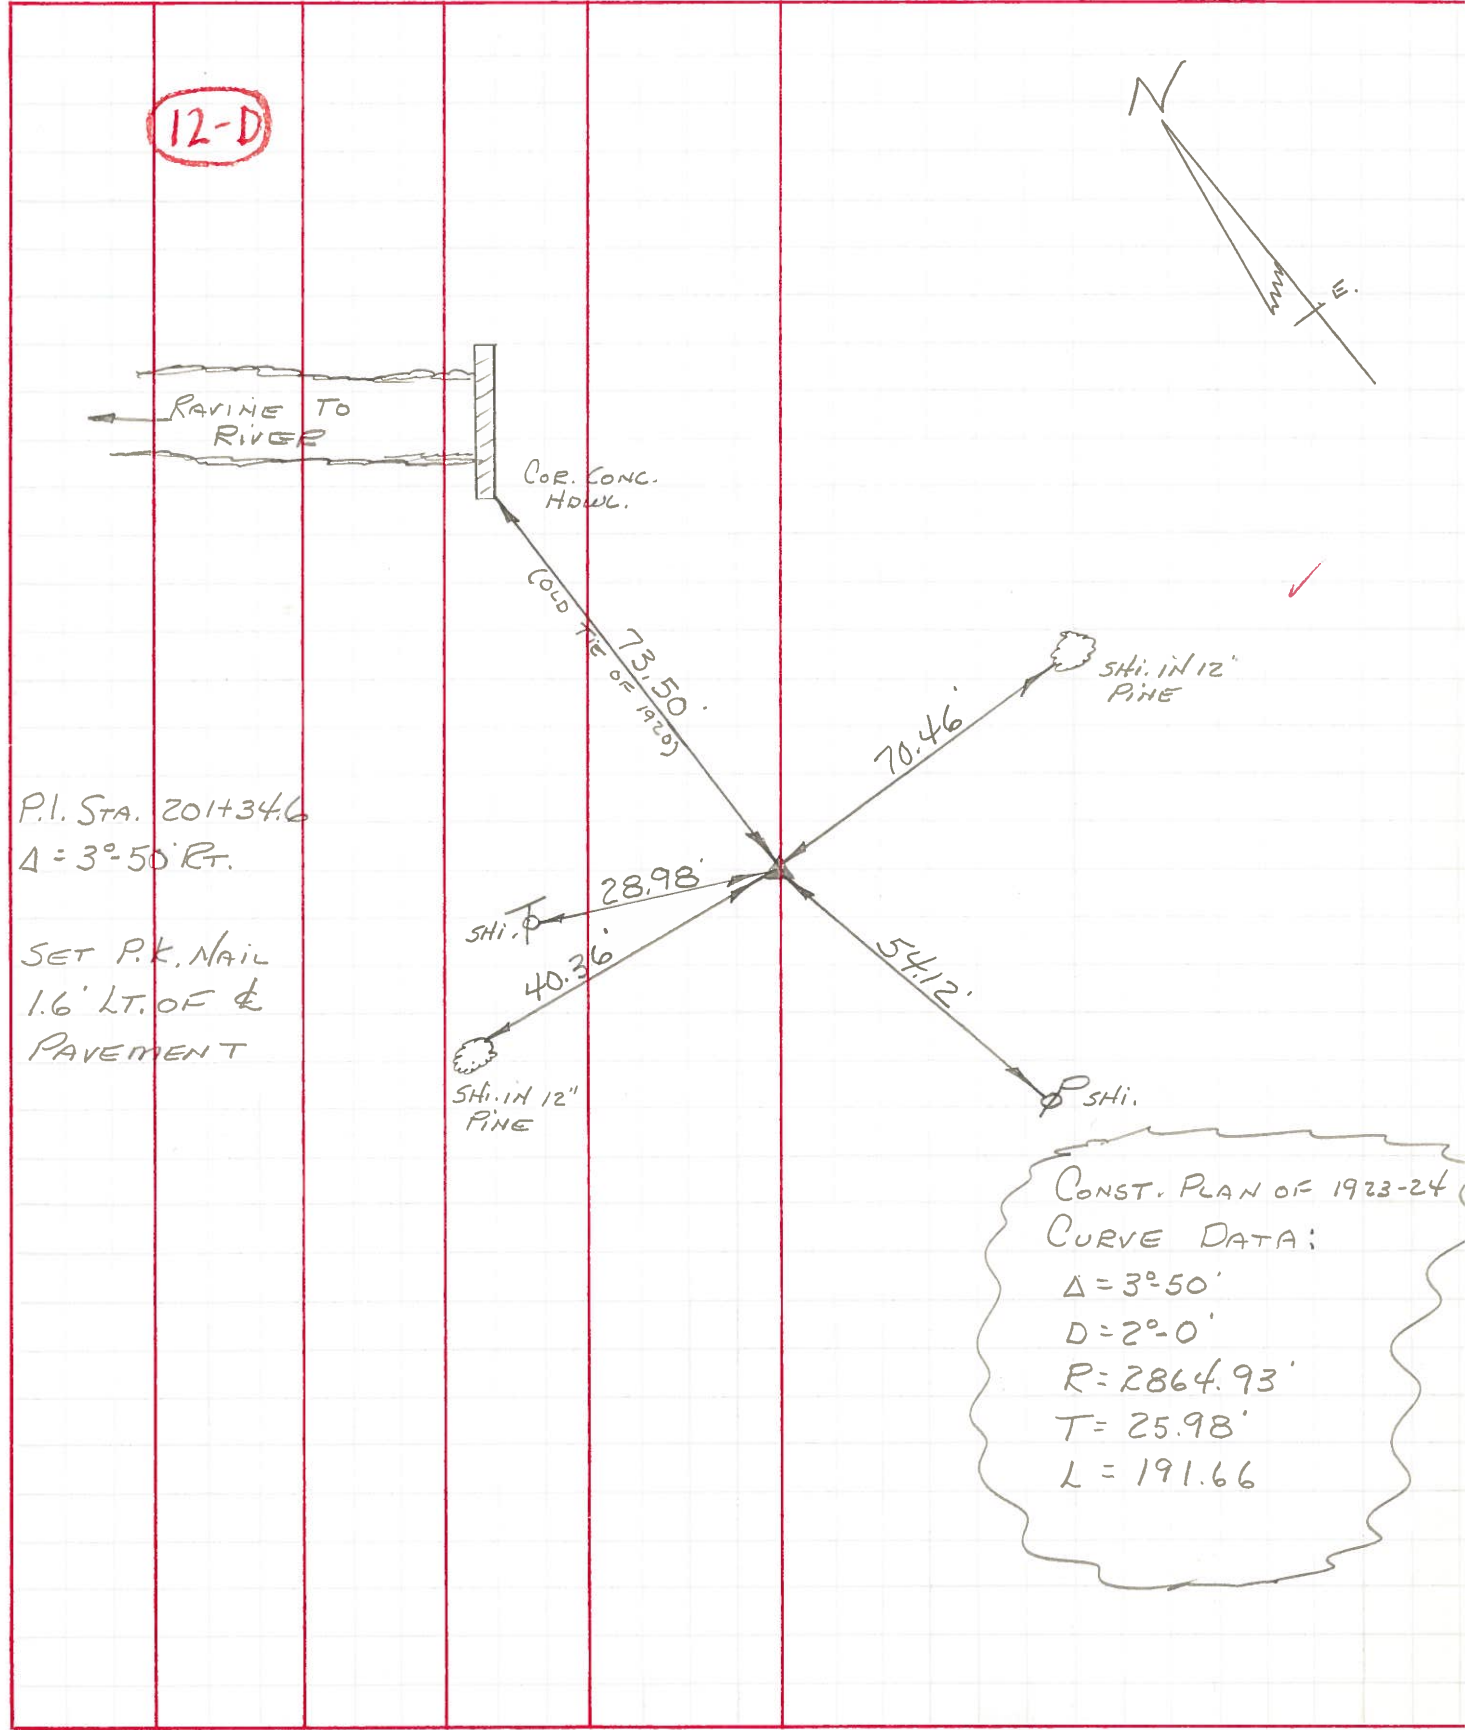 12-D
N
E.
RAVINE TO
RIVER
COR. CONC.
HDWL.
73.50'
(OLD TIE OF 1920)
SHI. IN 12"
PINE
70.46'
P.I. STA. 201+34.6
Δ = 3°-50' RT.
28.98'
SHI.
SET P.K. NAIL
1.6' LT. OF ℄
PAVEMENT
40.36'
54.12'
SHI. IN 12"
PINE
SHI.
CONST. PLAN OF 1923-24
CURVE DATA:
Δ = 3°-50'
D = 2°-0'
R = 2864.93'
T = 25.98'
L = 191.66